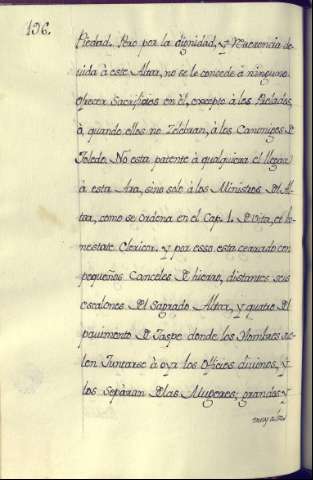 196.
Piedad. Pero por la dignidad, y Reverencia de-
vida à este Altar, no se le concede à ninguno
ofrecer Sacrificios en èl, excepto à los Prelados,
ò, quando ellos no Zelebran, à los Canonigos de
Toledo. No esta patente à qualquiera el llegar
à esta Ara, sino solo à los Ministros del Al-
tar, como se ordena en el Cap. 1. de Vita, et ho-
nestate Clericor. y por eso esta cerrado con
pequeños Canceles de hierro, distantes seis
escalones del Sagrado Altar, y quatro del
pavimento de Jaspe donde los Hombres sue-
len Juntarse à oyr los Oficios divinos, y
los Sepàran de las Mugeres; grandes y
muy altos